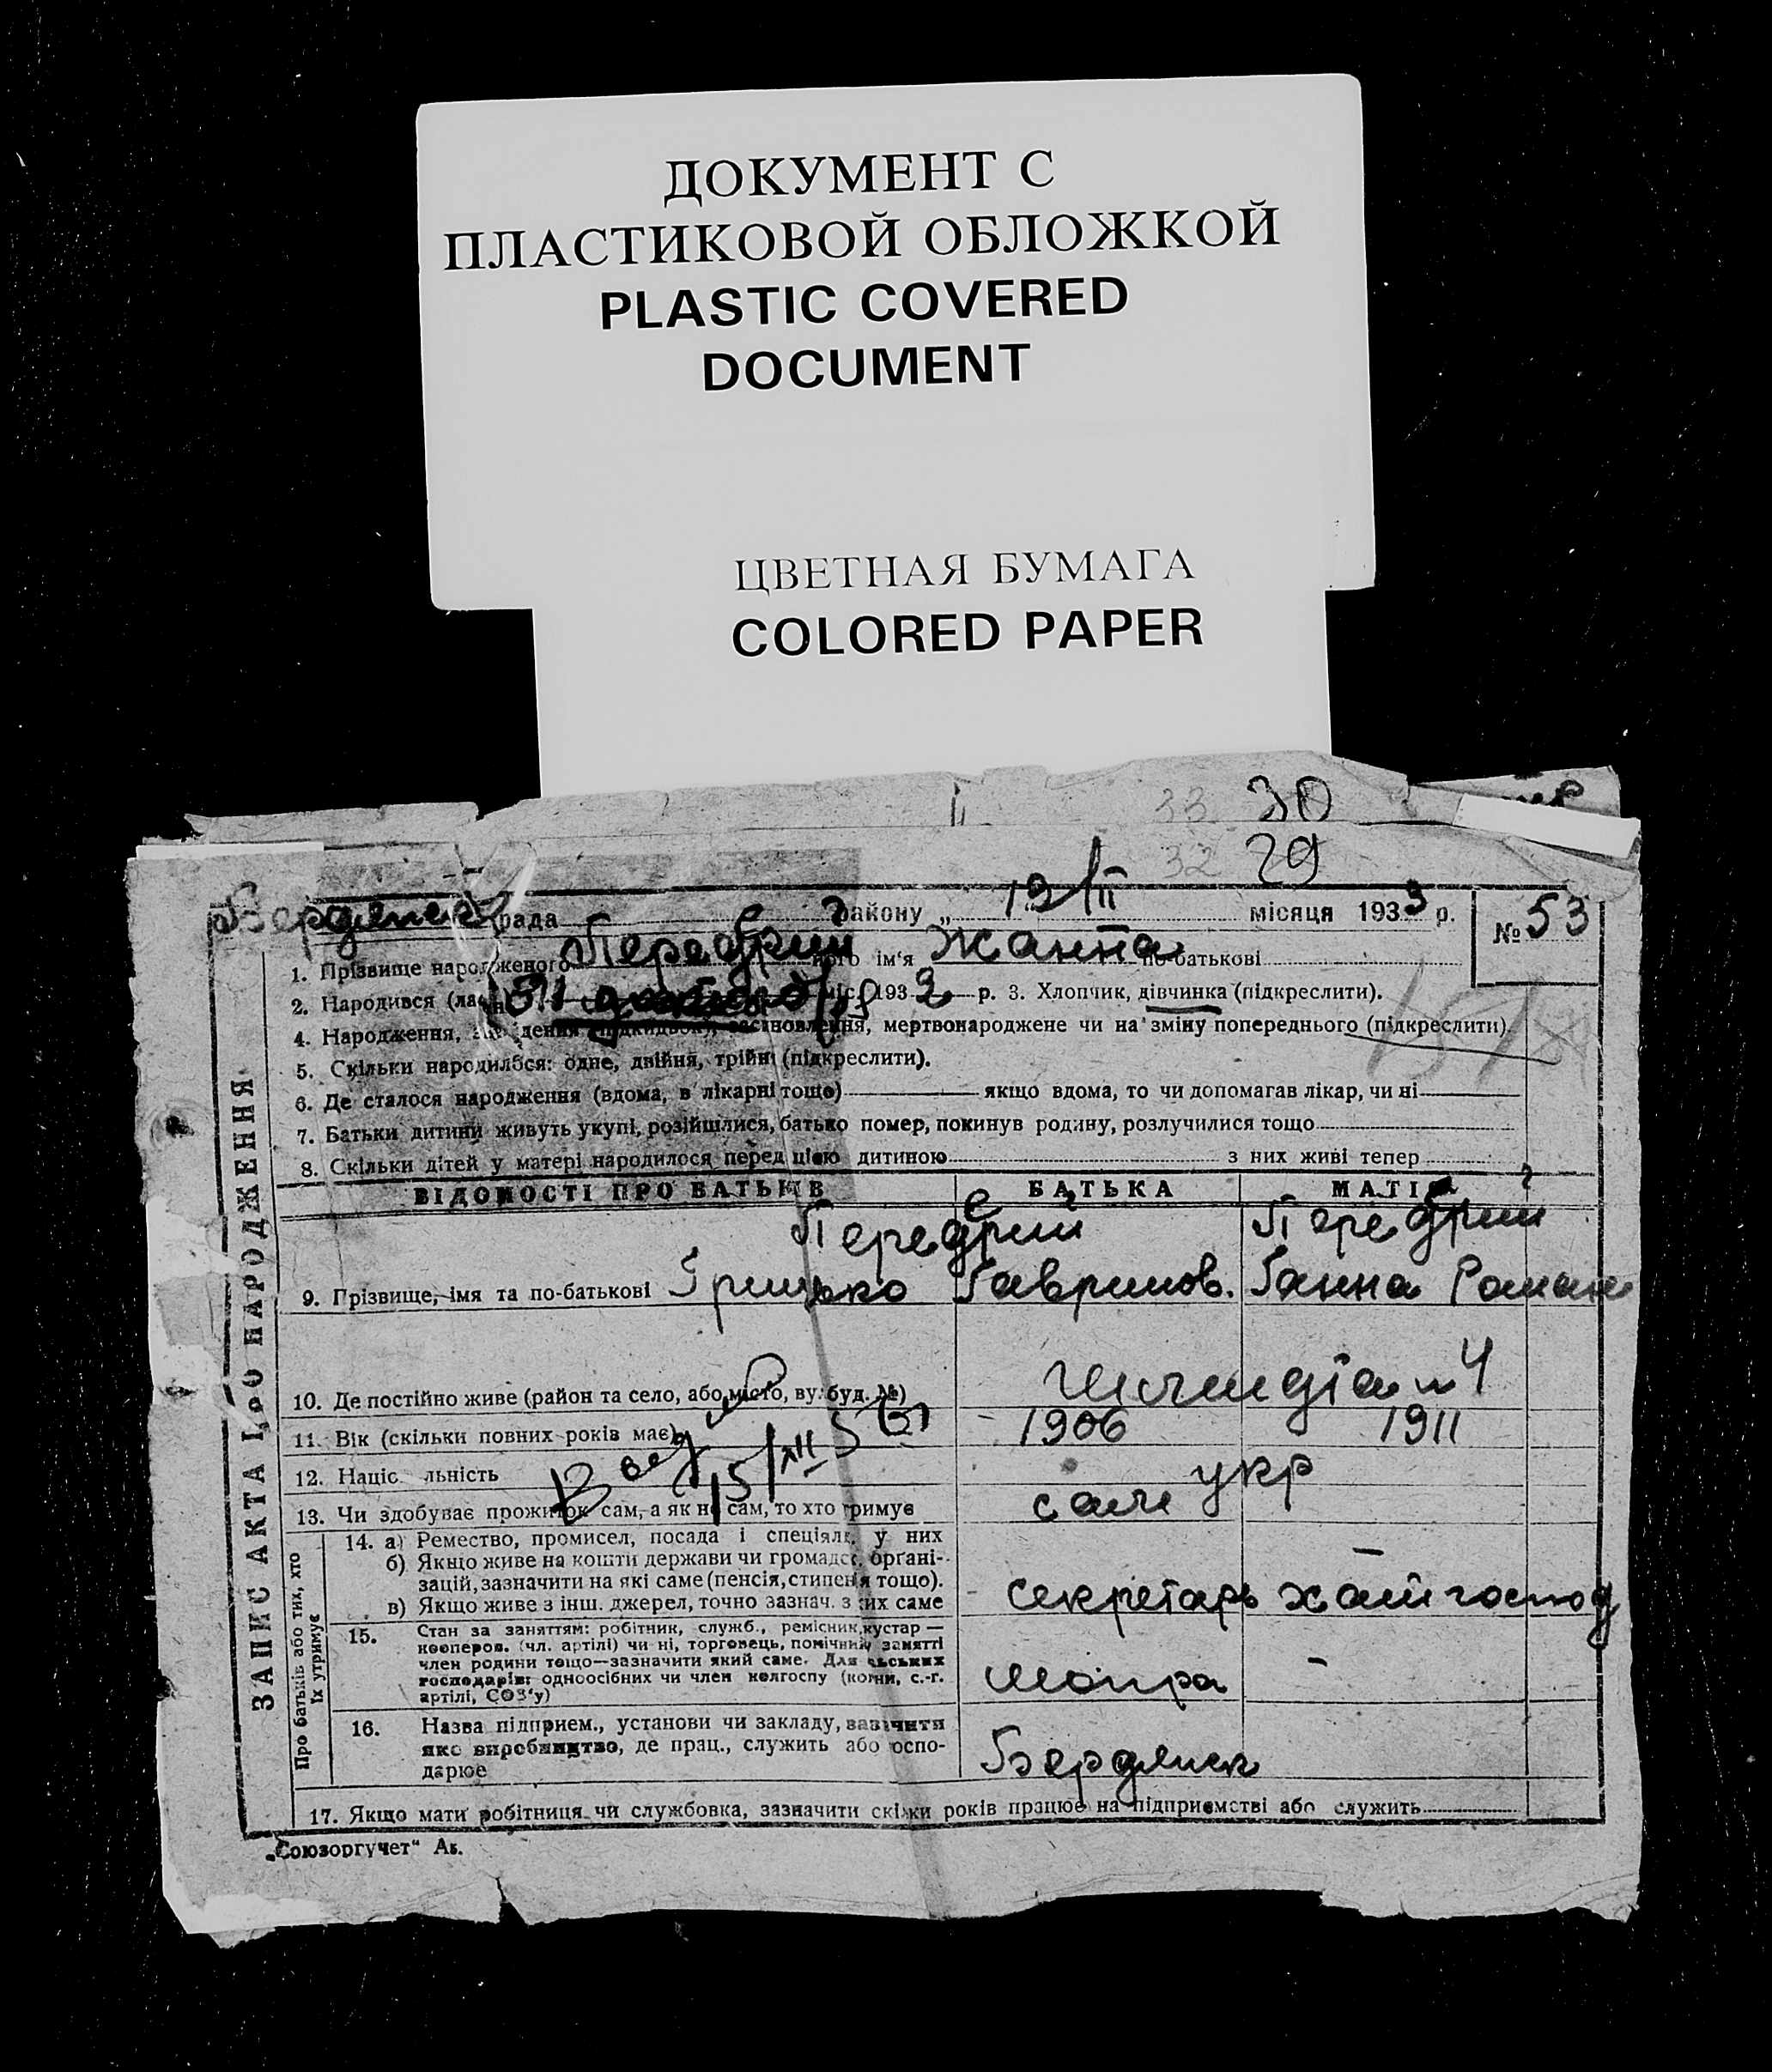 ДОКУМЕНТ С
ПЛАСТИКОВОЙ ОБЛОЖКОЙ
PLASTIC COVERED
DOCUMENT
ЦВЕТНАЯ БУМАГА
COLORED PAPER
33 30
32 29
рада району „ 19/II місяця 1933 р. № 53
1. Прізвище народженого ім'я Жанна по-батькові
2. Народився 1932 р. 3. Хлопчик, дівчинка (підкреслити).
4. Народження, мертвонароджене чи на зміну попереднього (підкреслити).
5. Скільки народилося: одне, двійня, трійня (підкреслити).
6. Де сталося народження (вдома, в лікарні тощо) якщо вдома, то чи допомагав лікар, чи ні
7. Батьки дитини живуть укупі, розійшлися, батько помер, покинув родину, розлучилися тощо
8. Скільки дітей у матері народилося перед цією дитиною з них живі тепер
ЗАПИС АКТА ПРО НАРОДЖЕННЯ
ВІДОМОСТІ ПРО БАТЬКІВ БАТЬКА МАТІР
Передрий Передрий
9. Прізвище, імя та по-батькові Грицько Гаврилов. Ганна Роман
10. Де постійно живе (район та село, або місто, вул. буд. №) 4
11. Вік (скільки повних років має) 1906 1911
15/XII
12. Націо льність укр
13. Чи здобуває прожиток сам, а як не сам, то хто тримує сам
Про батьків або тих, хто їх утримує
14. а) Ремество, промисел, посада і спеціяль. у них
б) Якщо живе на кошти держави чи громадс. органі-
зацій, зазначити на які саме (пенсія, стипендія тощо).
в) Якщо живе з інш. джерел, точно зазнач. з яких саме секретарь хатн господ
15. Стан за заняттям: робітник, служб., ремісник, кустар —
кооперов. (чл. артілі) чи ні, торговець, помічний занятті
член родини тощо—зазначити який саме. Для сільських
господарів: одноосібних чи член колгоспу (комуни, с.-г.
артілі, СОЗ'у) Мопра
16. Назва підприєм., установи чи закладу, зазначити
яке виробництво, де прац., служить або госпо-
дарює Бердянск
17. Якщо мати робітниця чи службовка, зазначити скільки років працює на підприємстві або служить
„Союзоргучет“